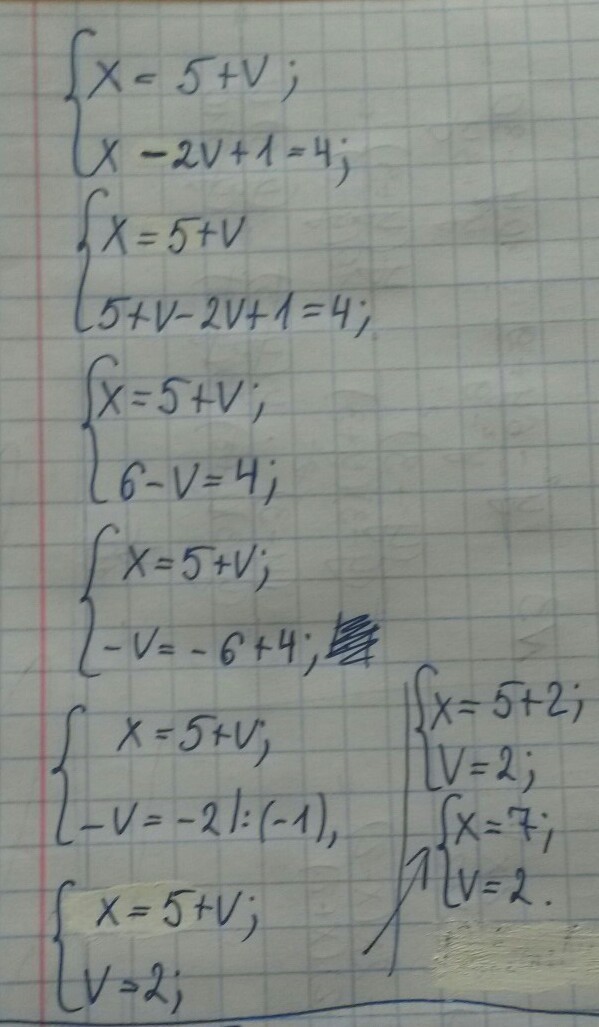 x = 5+v;
x - 2v + 1 = 4;
x = 5+v
5+v-2v+1=4;
x=5+v;
6-v=4;
x=5+v;
-v=-6+4;
x=5+v;
-v=-2|:(-1),
x=5+v;
v=2;
x=5+2;
v=2;
x=7;
v=2.